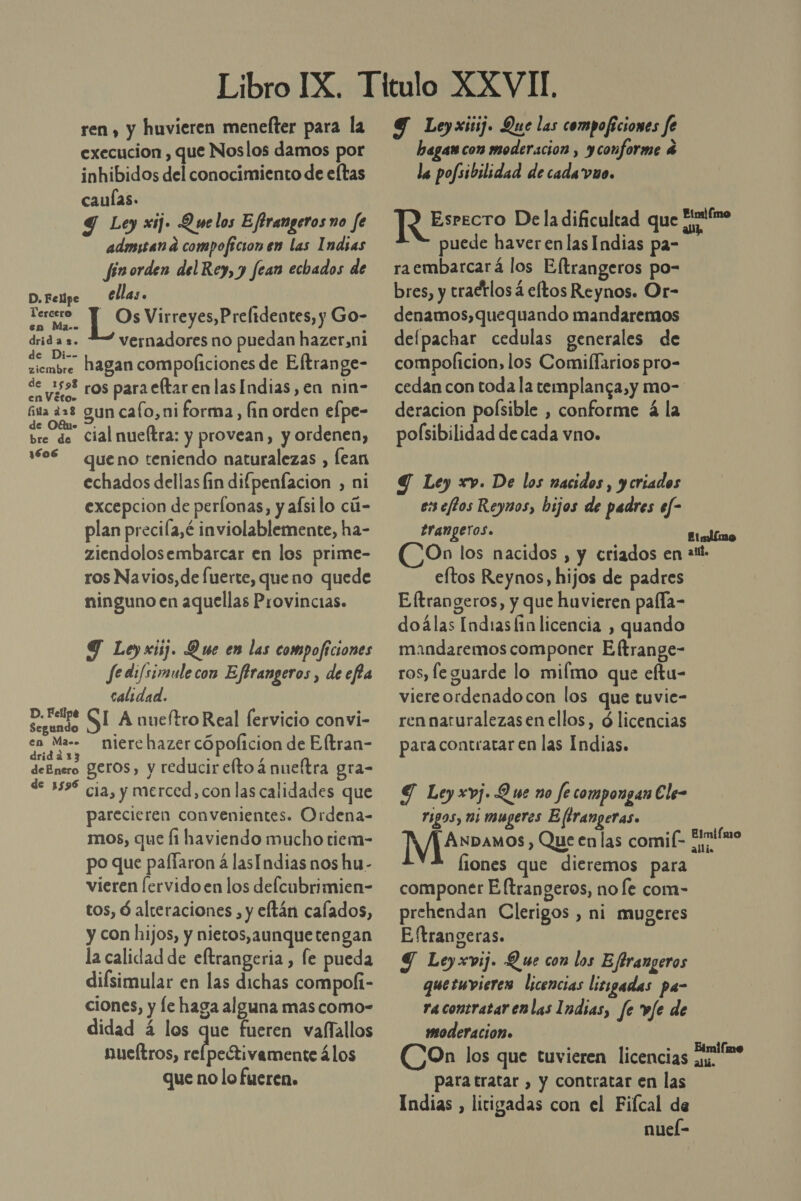 Libro IX. Titulo XXVII.
ren, y huvieren menefter para la
execucion, que Nos los damos por
inhibidos del conocimiento de eftas
caufas.
¶ Ley xij. Que los Eftrangeros no fe
admitan à compoficion en las Indias
fin orden del Rey, y fean echados de
ellas.
D. Felipe
Tercero
en Ma--
drid a 2.
de Di--
ziembre
de 1598
en Vẽto-
filla à 28
de Octu-
bre de
1606
LOs Virreyes, Prefidentes, y Go-
vernadores no puedan hazer, ni
hagan compoficiones de Eftrange-
ros para eftar en las Indias, en nin-
gun cafo, ni forma, fin orden efpe-
cial nueftra: y provean, y ordenen,
que no teniendo naturalezas, fean
echados dellas fin difpenfacion, ni
excepcion de perfonas, y afsi lo cũ-
plan precifa, é inviolablemente, ha-
ziendolos embarcar en los prime-
ros Navios, de fuerte, que no quede
ninguno en aquellas Provincias.
¶ Ley xiij. Que en las compoficiones
fe difsimule con Eftrangeros, de efta
calidad.
D. Felipe
Segundo
en Ma--
drid à 13
de Enero
de 1596
SI A nueftro Real fervicio convi-
niere hazer cõpoficion de Eftran-
geros, y reducir efto á nueftra gra-
cia, y merced, con las calidades que
parecieren convenientes. Ordena-
mos, que fi haviendo mucho tiem-
po que paffaron á las Indias nos hu-
vieren fervido en los defcubrimien-
tos, ó alteraciones, y eftán cafados,
y con hijos, y nietos, aunque tengan
la calidad de eftrangeria, fe pueda
difsimular en las dichas compofi-
ciones, y fe haga alguna mas como-
didad á los que fueren vaffallos
nueftros, refpectivamente á los
que no lo fueren.
¶ Ley xiiij. Que las compoficiones fe
hagan con moderacion, y conforme à
la pofsibilidad de cada vno.
El mifmo
alli.
REspecto De la dificultad que
puede haver en las Indias pa-
ra embarcar á los Eftrangeros po-
bres, y traerlos á eftos Reynos. Or-
denamos, que quando mandaremos
defpachar cedulas generales de
compoficion, los Comiffarios pro-
cedan con toda la templança, y mo-
deracion pofsible, conforme á la
pofsibilidad de cada vno.
¶ Ley xv. De los nacidos, y criados
en eftos Reynos, hijos de padres ef-
trangeros.
El mifmo
alli.
COn los nacidos, y criados en
eftos Reynos, hijos de padres
Eftrangeros, y que huvieren paffa-
do á las Indias fin licencia, quando
mandaremos componer Eftrange-
ros, fe guarde lo mifmo que eftu-
viere ordenado con los que tuvie-
ren naturalezas en ellos, ó licencias
para contratar en las Indias.
¶ Ley xvj. Que no fe compongan Cle-
rigos, ni mugeres Eftrangeras.
El mifmo
alli.
MAndamos, Que en las comif-
fiones que dieremos para
componer Eftrangeros, no fe com-
prehendan Clerigos, ni mugeres
Eftrangeras.
¶ Ley xvij. Que con los Eftrangeros
que tuvieren licencias litigadas pa-
ra contratar en las Indias, fe vfe de
moderacion.
El mifmo
alli.
COn los que tuvieren licencias
para tratar, y contratar en las
Indias, litigadas con el Fifcal de
nuef-